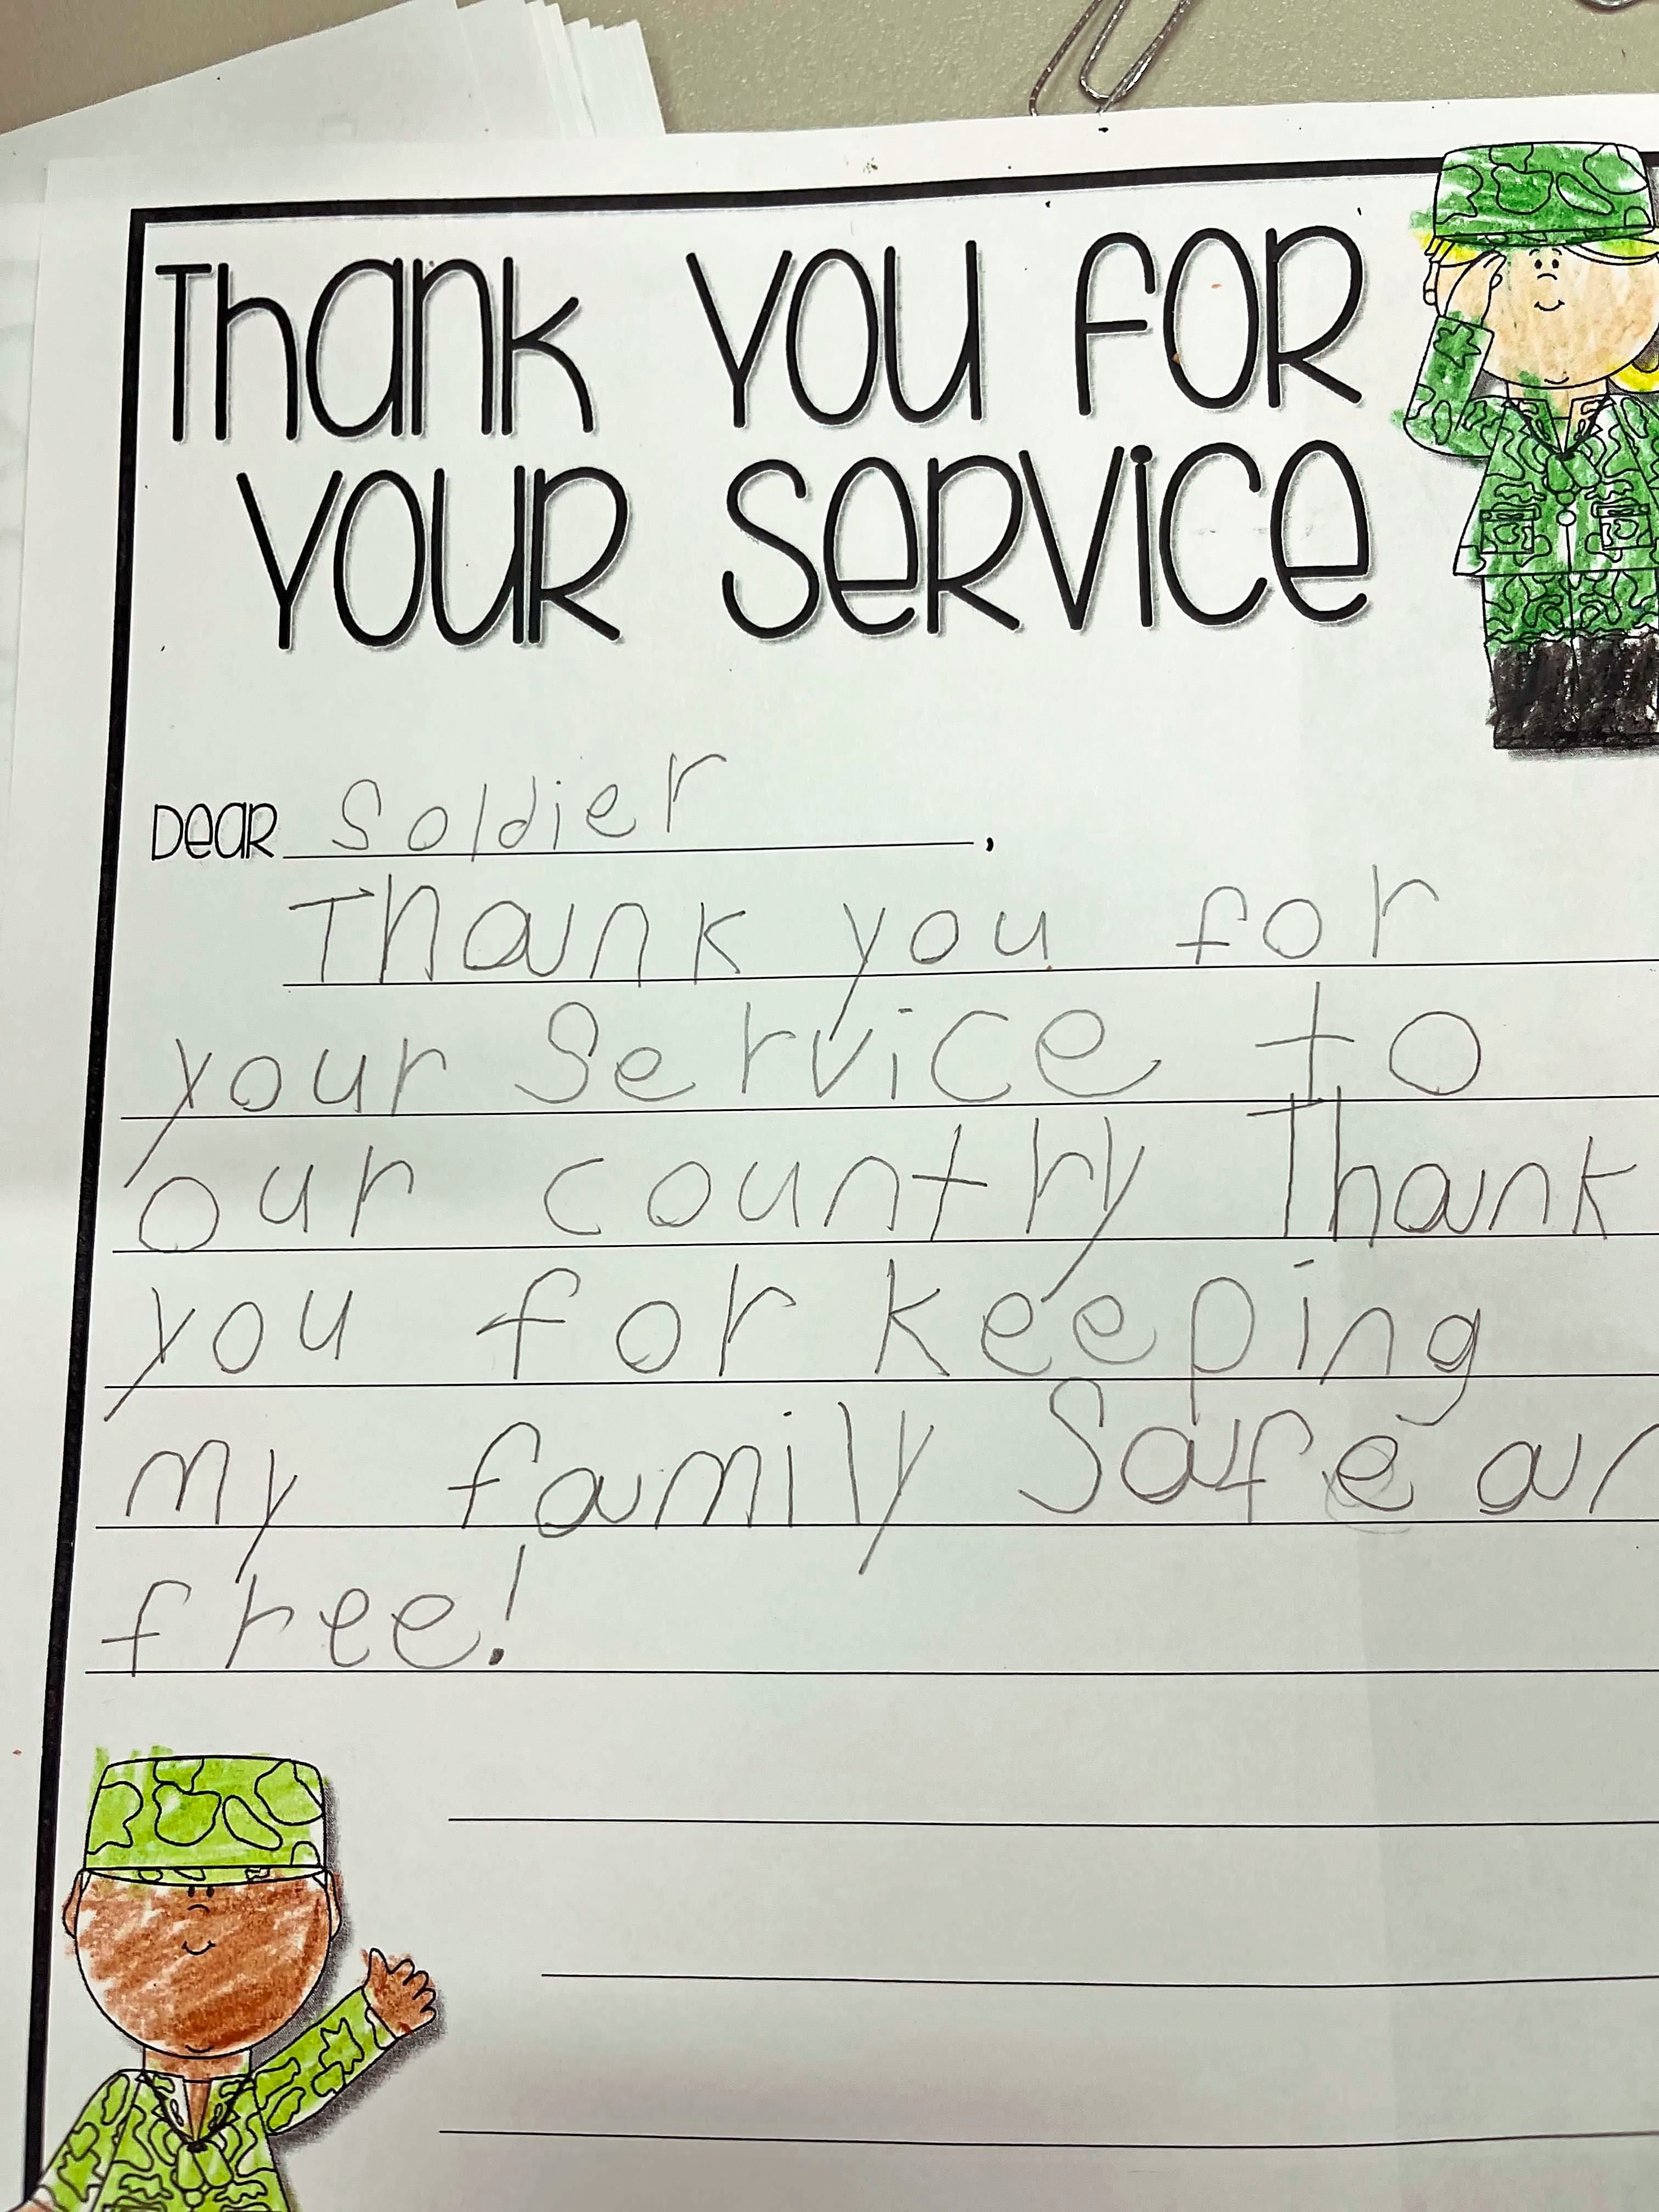 Thank you for
your service
Dear Soldier,
Thank you for
your Service to
our country Thank
you for keeping
my family Safe
free!